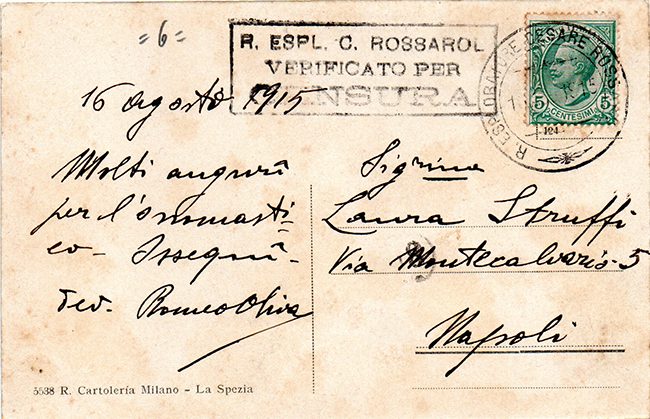 = 6 =
R. ESPL. C. ROSSAROL
VERIFICATO PER
CENSURA
R. ESPLORATORE CESARE ROSS
5 5
CENTESIMI
16 Agosto 1915
Molti augurî
per l'onomasti-
co - Ossequî -
Dev. Romeo Oliva
Sigrina
Laura Struffi
Via Montecalvario - 5
Napoli
5538 R. Cartoleria Milano - La Spezia